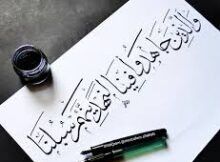 والذين جاهدوا فينا لنهدينهم سبلنا